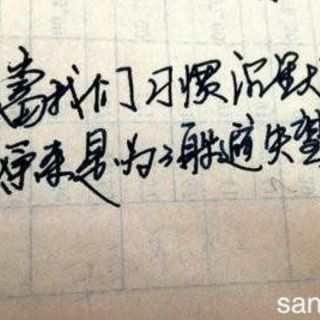 當我们习惯沉默
原来是为了躲避失望
san